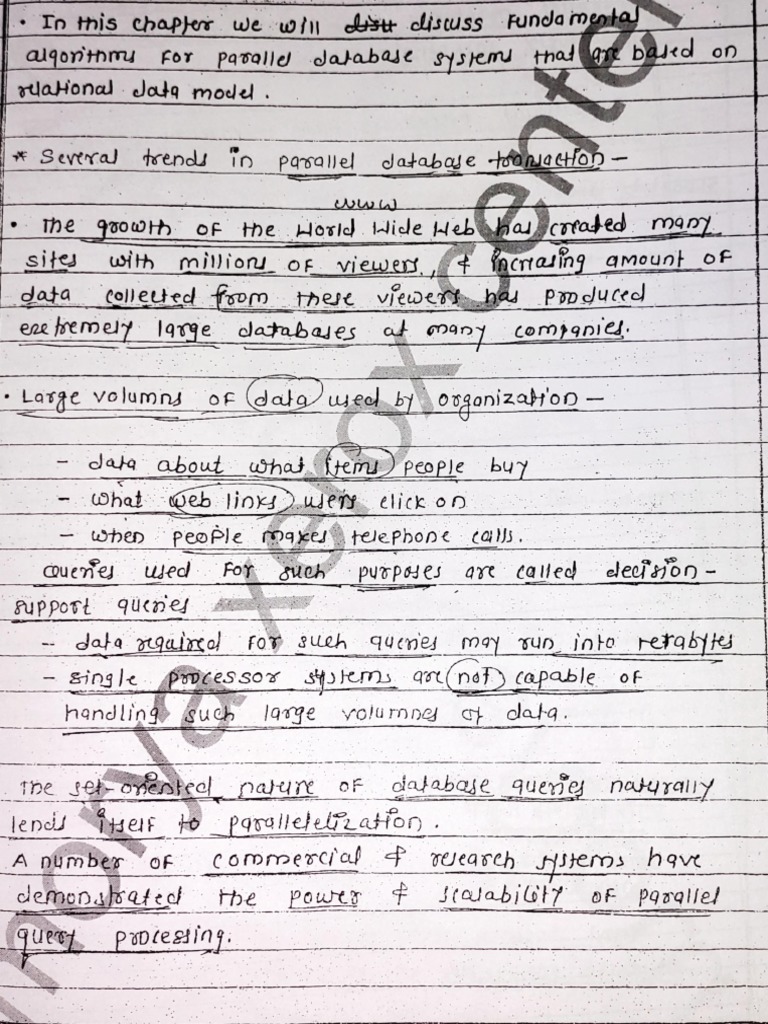 • In this chapter we will disu discuss fundamental
algorithms for parallel database systems that are based on
relational data model.
* Several trends in parallel database transaction –
WWW
• The growth of the World Wide Web has created many
sites with millions of viewers, & increasing amount of
data collected from these viewers has produced
extremely large databases at many companies.
• Large volumns of data used by organization –
– data about what items people buy
– what web links users click on
– when people makes telephone calls.
Queries used for such purposes are called decision –
support queries
– data required for such queries may run into retabytes
– single processor systems are not capable of
handling such large volumnes of data.
The set-oriented nature of database queries naturally
lends itself to paralletelization.
A number of commercial & research systems have
demonstrated the power & scalability of parallel
query processing.
morya xerox center